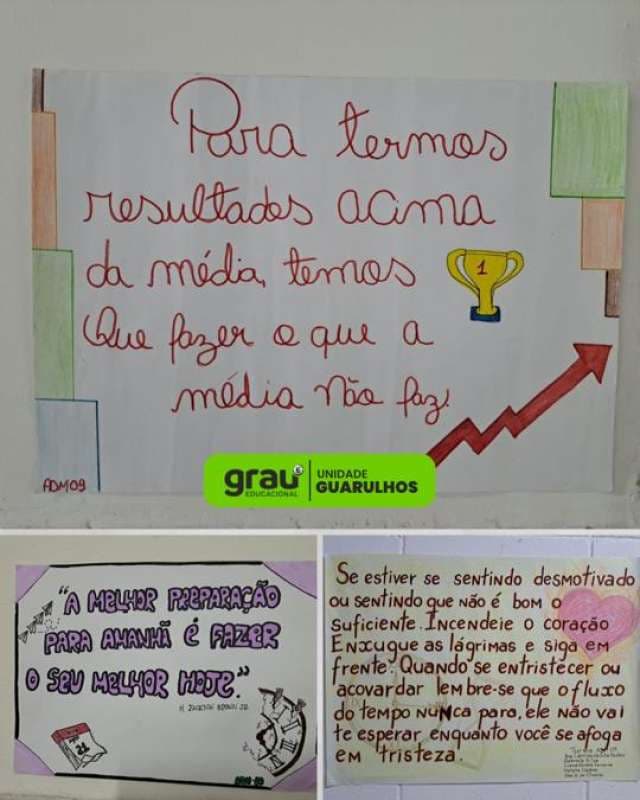 Para termos
resultados acima
da média, temos
Que fazer o que a
média não faz!
1
ADM09
grau
EDUCACIONAL
UNIDADE
GUARULHOS
"A MELHOR PREPARAÇÃO
PARA AMANHÃ É FAZER
O SEU MELHOR HOJE."
H. JACKSON BROWN JR.
21
Se estiver se sentindo desmotivado
ou sentindo que não é bom o
suficiente. Incendeie o coração
Enxugue as lágrimas e siga em
frente. Quando se entristecer ou
acovardar lembre-se que o fluxo
do tempo nunca para, ele não vai
te esperar enquanto você se afoga
em tristeza.